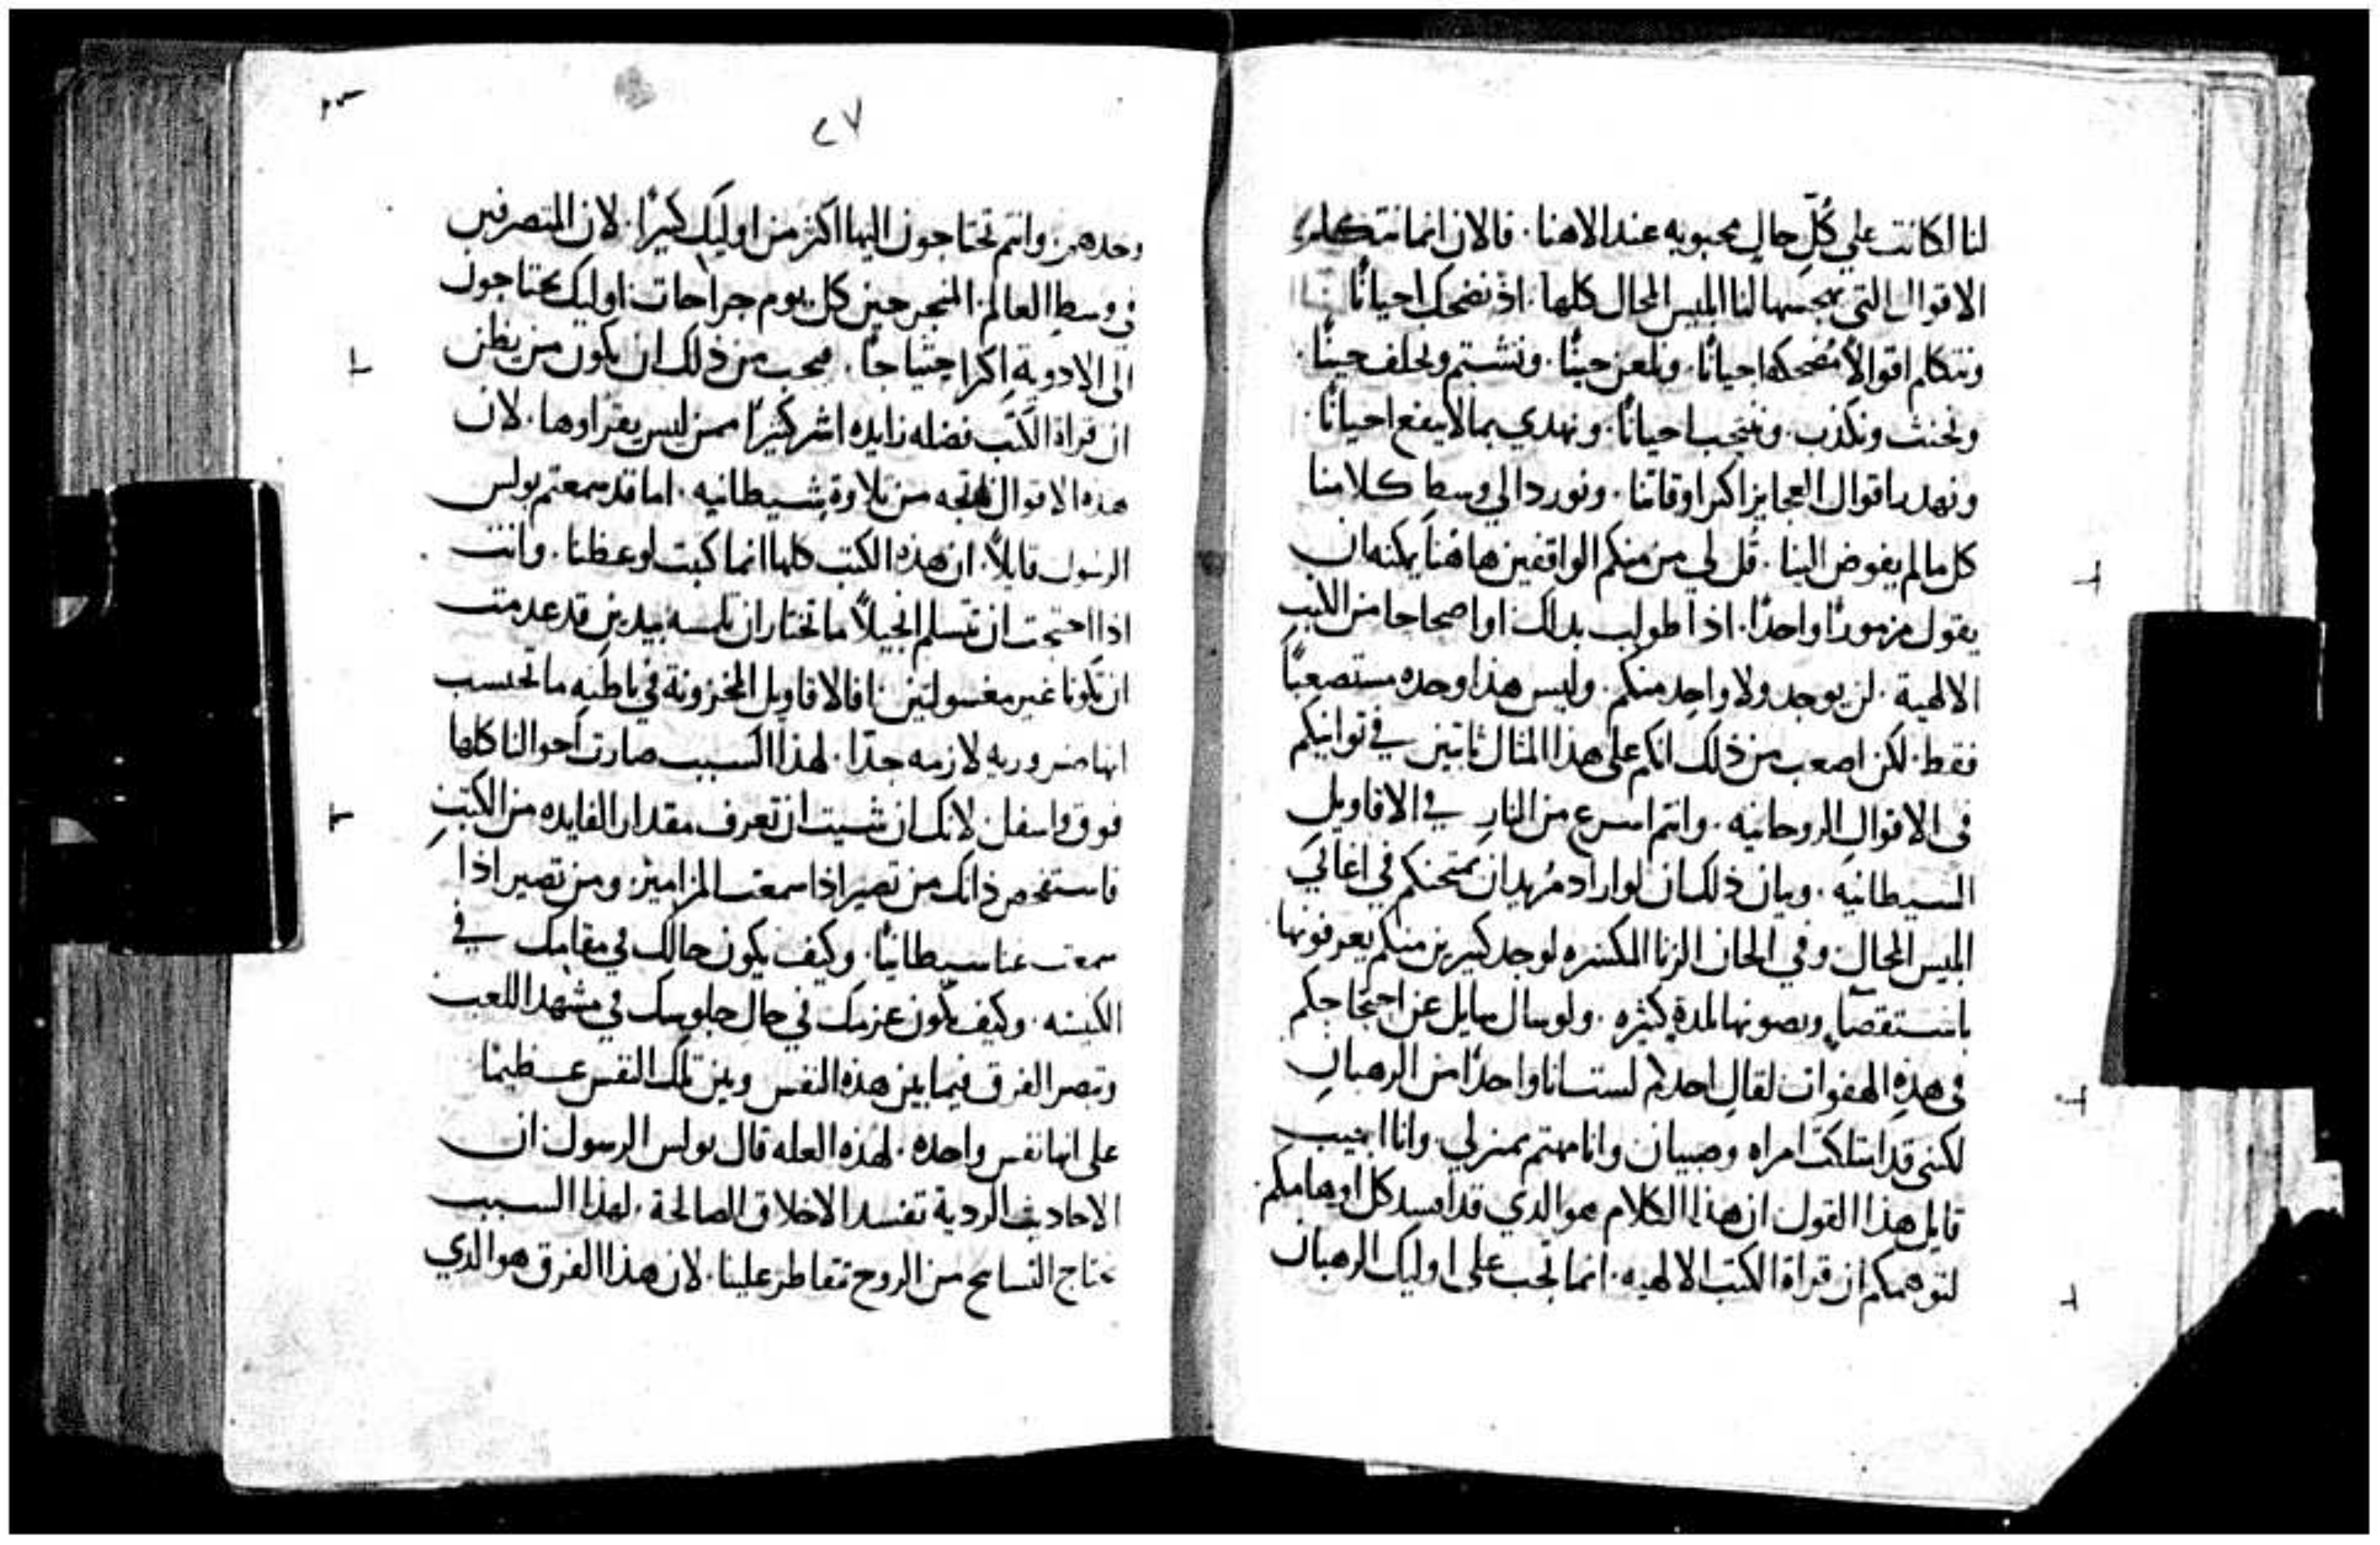 لنا لكانت علي كُلّ حالٍ محبوبه عند الاهنا . فالان انما نتكلم
الاقوال التي يهجسها لنا ابليس المحال كلها . اذ نضحك احيانًا
ونتكلم اقوالاً مُضحكه احيانًا . ونلعن حينًا . ونشتم ونحلف حينًا .
ونحنث ونكذب . وننتحب احيانًا . ونهدي بما لا ينفع احيانًا .
ونهدر اقوال العجايز اكثر اوقاتنا . ونورد الي وسط كلامنا
كل ما لم يفوض الينا . قُل لي من منكم الواقفين هاهنا يمكنه ان
يقول مزمورًا واحدًا . اذا طولب بدلك او اصحاحا من الكتب
الالهية . لن يوجد ولا واحد منكم . وليس هذا وحده مستصعبًا
فقط . لكن اصعب من ذلك انكم على هذا المثال ثابتين في توانيكم
في الاقوالِ الروحانيه . وانتم اسرع من النارِ في الاقاويل
السيطانيه . وبيان ذلك ان لو اراد مُريد ان يمتحنكم في اغاني
ابليس المحال وفي الحان الزنا المكسره لوجد كثيرين منكم يعرفونها
باستقصآءٍ ويصونها لمدةٍ كثيره . ولو سال سايل عن احتجاجكم
في هذهِ الهفوات لقال احدكم لست انا واحدًا من الرهبانِ
لكني قد امتلكت امراه وصبيان وانا مهتم بمنزلي . وانا اجيب
قايل هذا القول ان هذا الكلام هو الدي قد افسد كل اوهامكم .
لتوهمكم ان قراة الكتب الالهيه . انما تجب على اوليك الرهبان
٢٧
وحدهم . وانتم تحتاجون اليها اكثر من اوليك كثيرًا . لان المتصرفين
في وسط العالم . المنجرحين كل يوم جراحات . اوليك يحتاجون
الى الادويةِ اكثر احتياجًا . فيجب من ذلك ان يكون من يظن
ان قراة الكتب فضله زايده اشر كثيرًا ممن ليس يقراوها . لان
هذه الاقوال ناتجه من تلاوةٍ شيطانيه . اما قد سمعتم بولس
الرسول قايلاً . ان هذه الكتب كلها انما كتبت لوعظنا . وانت
اذا احتجت ان تتسلم انجيلاً ما تختار ان تلمسه بيدين قد عدمت
ان تكونا غير مغسولتين فالاقاويل المخزونة في باطنهِ ما تحتسب
انها ضروريه لازمه جدًا . لهذا السبب صارت احوالنا كلها
فوق واسفل . لانك ان شيت ان تعرف مقدار الفايده من الكتبِ
فاستفحص ذاتك من تصير اذا سمعت المزامير . ومن تصير اذا
سمعت غنا سيطانيًا . وكيف يكون حالك في مقامك في
الكنيسه . وكيف يكون عزمك في حالِ جلوسك في مشهد اللعب
وتبصر الفرق فيما بين هذه النفس وبين تلك النفس عظيمًا
على انها نفس واحده . لهذه العله قال بولس الرسول ان
الاحاديث الردية تفسد الاخلاق الصالحة . لهذا السبب
نحتاج التسابيح من الروح تتقاطر علينا . لان هذا الفرق هو الذي